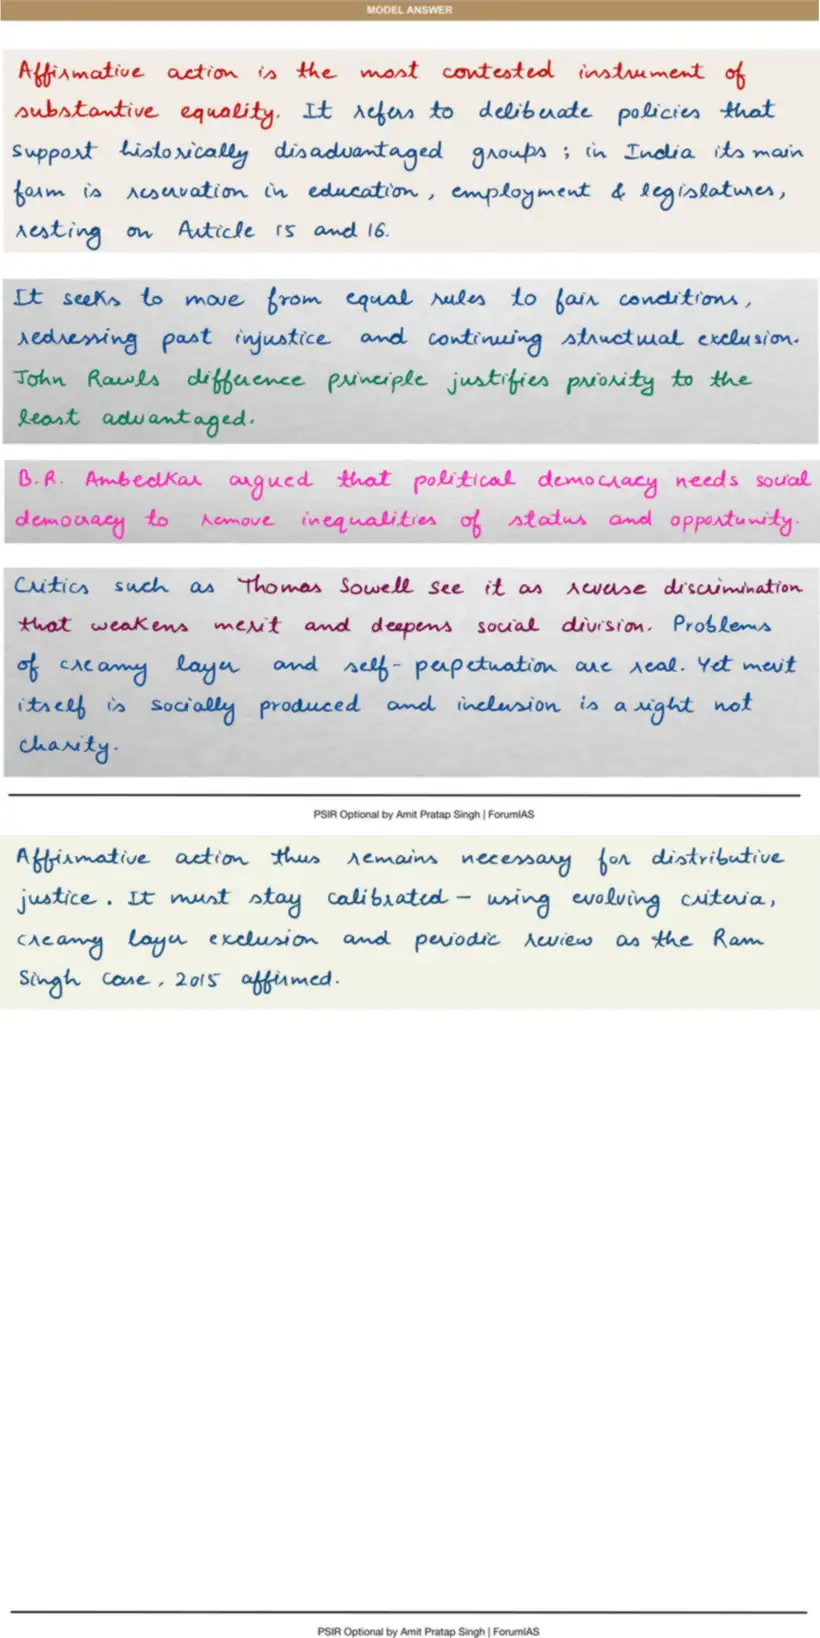 MODEL ANSWER
Affirmative action is the most contested instrument of
substantive equality. It refers to deliberate policies that
support historically disadvantaged groups ; in India its main
form is reservation in education, employment & legislatures,
resting on Article 15 and 16.
It seeks to move from equal rules to fair conditions,
redressing past injustice and continuing structural exclusion.
John Rawls difference principle justifies priority to the
least advantaged.
B.R. Ambedkar argued that political democracy needs social
democracy to remove inequalities of status and opportunity.
Critics such as Thomas Sowell see it as reverse discrimination
that weakens merit and deepens social division. Problems
of creamy layer and self-perpetuation are real. Yet merit
itself is socially produced and inclusion is a right not
charity.
PSIR Optional by Amit Pratap Singh | ForumIAS
Affirmative action thus remains necessary for distributive
justice. It must stay calibrated – using evolving criteria,
creamy layer exclusion and periodic review as the Ram
Singh Case, 2015 affirmed.
PSIR Optional by Amit Pratap Singh | ForumIAS